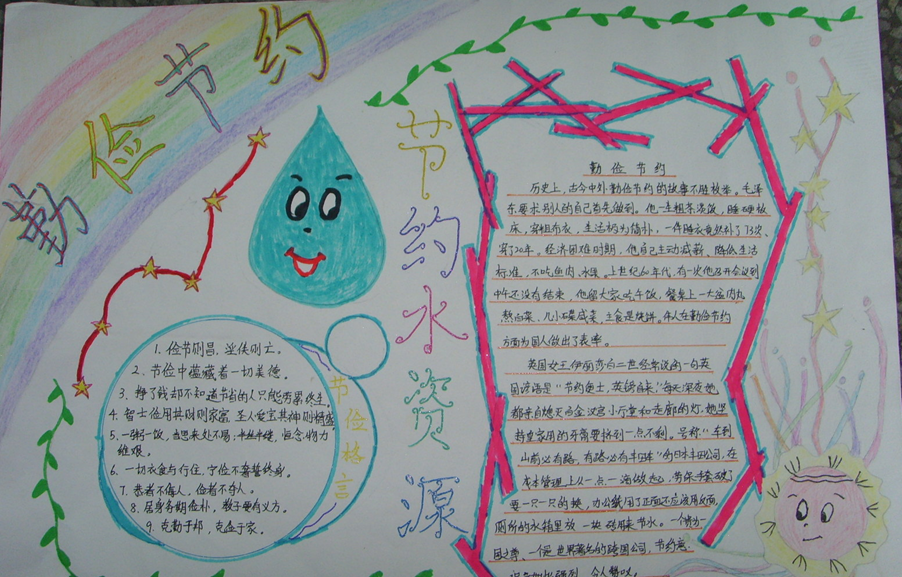 勤俭节约
节约水资源
节俭格言
1. 俭节则昌，淫佚则亡。
2. 节俭中蕴藏着一切美德。
3. 挣了钱却不知道节省的人只能劳累终生。
4. 智士俭用其财则家富 圣人爱宝其神则精盛。
5. 一粥一饭，当思来处不易；半丝半缕，恒念物力
维艰。
6. 一切衣食与行住，宁俭不奢誓终身。
7. 恭者不侮人，俭者不夺人。
8. 居身务期俭朴，教子要有义方。
9. 克勤于邦，克俭于家。
勤俭节约
历史上，古今中外勤俭节约的故事不胜枚举。毛泽
东要求别人的自己首先做到。他一生粗茶淡饭，睡硬板
床，穿粗布衣，生活极为简朴，一件睡衣竟然补了73次、
穿了20年。经济困难时期，他自己主动减薪、降低生活
标准，不吃鱼肉、水果。上世纪60年代，有一次他召开会议到
中午还没有结束，他留大家吃午饭，餐桌上一大盆肉丸
熬白菜、几小碟咸菜，主食是烧饼。个人在勤俭节约
方面为国人做出了表率。
英国女王伊丽莎白二世经常说的一句英
国谚语是“节约便士，英镑自来”，每天深夜她
都亲自熄灭白金汉宫小厅堂和走廊的灯，她坚
持皇家用的牙膏要挤到一点不剩。号称“车到
山前必有路，有路必有丰田车”的日本丰田公司，在
成本管理上从一点一滴做起，劳保手套破了
要一只一只的换，办公纸用了正面还应该用反面，
厕所的水箱里放一块砖用来节水。一个贵为一
国之尊、一个是世界著名的跨国公司，节约意